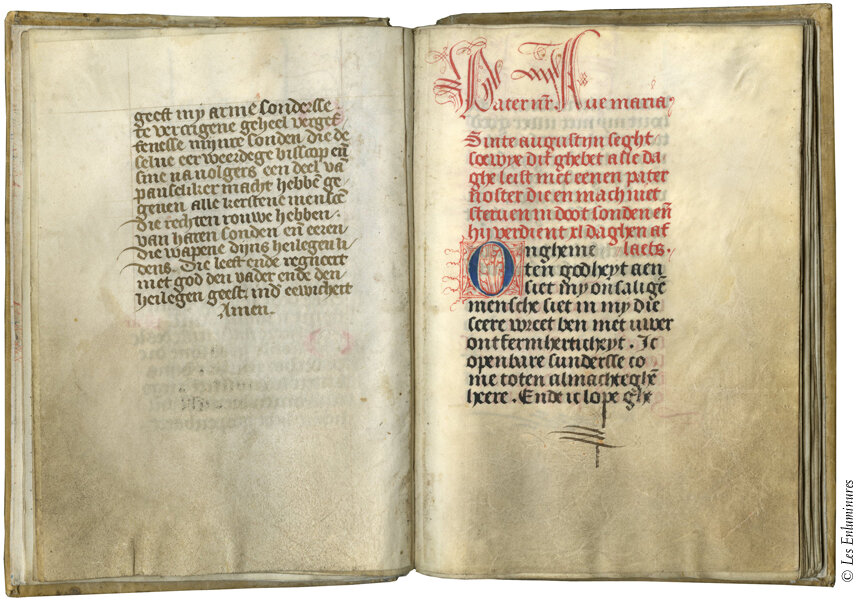 geeft my arme sondersse
te vercrigene geheel verget
fenesse mijnre sonden die de
selue eerweerdege bisscop en̄
sine nauolgers een deel va᷑
pauseliker macht hebbē ge
geuen alle kerstene menscē
Die rechten rouwe hebben
van haren sonden en̄ eeren
die wapene dijns heilegen li
dens. Die leeft ende regneert
met god den vader ende den
heilegen geest. ind eewicheit
Amen.
Pater nr̄. Aue maria.
Sinte augustijn seght
soe wie dit ghebet alle da
ghe leist met eenen pater
noster die en mach niet
steruen in doot sonden en̄
hij verdient xl daghen af
laets.
Ongheme
ten godheyt aen
siet my onsalige
mensche siet in my die
seere wreet ben met uwer
ontfermherticheyt. Ic
openbare sundersse co
me toten almacheghē
heere. Ende ic lope ghe
© Les Enluminures